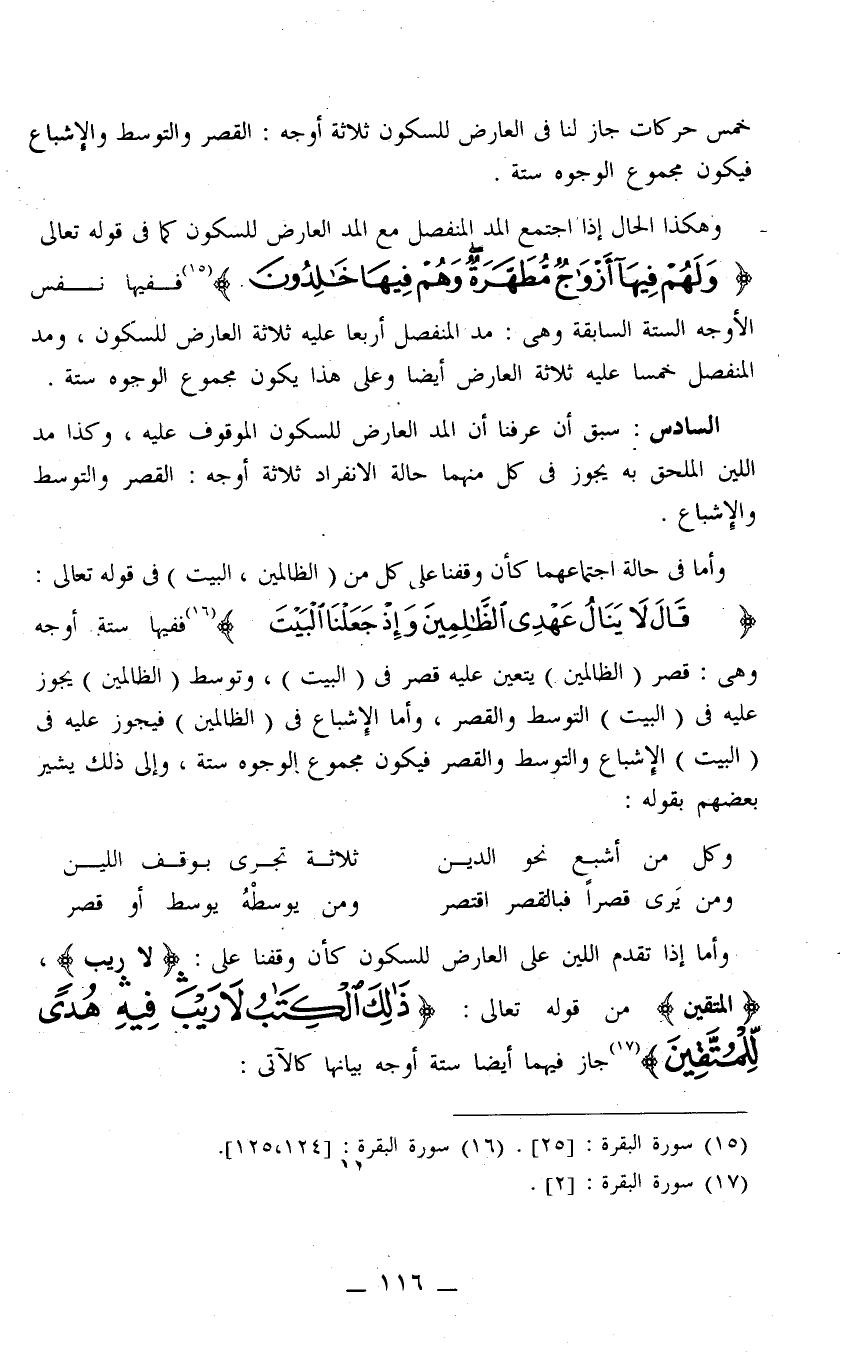 خمس حركات جاز لنا فى العارض للسكون ثلاثة أوجه : القصر والتوسط والإشباع
فيكون مجموع الوجوه ستة .
وهكذا الحال إذا اجتمع المد المنفصل مع المد العارض للسكون كما فى قوله تعالى
﴿ وَلَهُمْ فِيهَآ أَزْوَٰجٌ مُّطَهَّرَةٌ ۖ وَهُمْ فِيهَا خَـٰلِدُونَ ﴾(١٥) ففيها نفس
الأوجه الستة السابقة وهى : مد المنفصل أربعا عليه ثلاثة العارض للسكون ، ومد
المنفصل خمسا عليه ثلاثة العارض أيضا وعلى هذا يكون مجموع الوجوه ستة .
السادس : سبق أن عرفنا أن المد العارض للسكون الموقوف عليه ، وكذا مد
اللين الملحق به يجوز فى كل منهما حالة الانفراد ثلاثة أوجه : القصر والتوسط
والإشباع .
وأما فى حالة اجتماعهما كأن وقفنا على كل من ( الظالمين ، البيت ) فى قوله تعالى :
﴿ قَالَ لَا يَنَالُ عَهْدِى ٱلظَّـٰلِمِينَ وَإِذْ جَعَلْنَا ٱلْبَيْتَ ﴾(١٦) ففيها ستة أوجه
وهى : قصر ( الظالمين ) يتعين عليه قصر فى ( البيت ) ، وتوسط ( الظالمين ) يجوز
عليه فى ( البيت ) التوسط والقصر ، وأما الإشباع فى ( الظالمين ) فيجوز عليه فى
( البيت ) الإشباع والتوسط والقصر فيكون مجموع الوجوه ستة ، وإلى ذلك يشير
بعضهم بقوله :
وكل من أشبع نحو الدين ثلاثة تجرى بوقف اللين
ومن يَرى قصراً فبالقصر اقتصر ومن يوسطْهُ يوسط أو قصر
وأما إذا تقدم اللين على العارض للسكون كأن وقفنا على : ﴿ لا ريب ﴾ ،
﴿ المتقين ﴾ من قوله تعالى : ﴿ ذَٰلِكَ ٱلْكِتَـٰبُ لَا رَيْبَ ۛ فِيهِ ۛ هُدًى
لِّلْمُتَّقِينَ ﴾(١٧) جاز فيهما أيضا ستة أوجه بيانها كالآتى :
(١٥) سورة البقرة : [٢٥] . (١٦) سورة البقرة : [١٢٤،١٢٥].
(١٧) سورة البقرة : [٢] .
— ١١٦ —